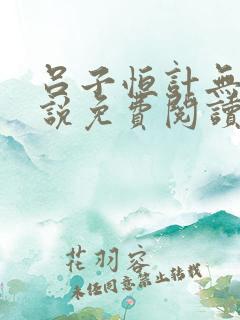 吕子恒計無
說免費閱讀
花羽容
未经同意禁止转载